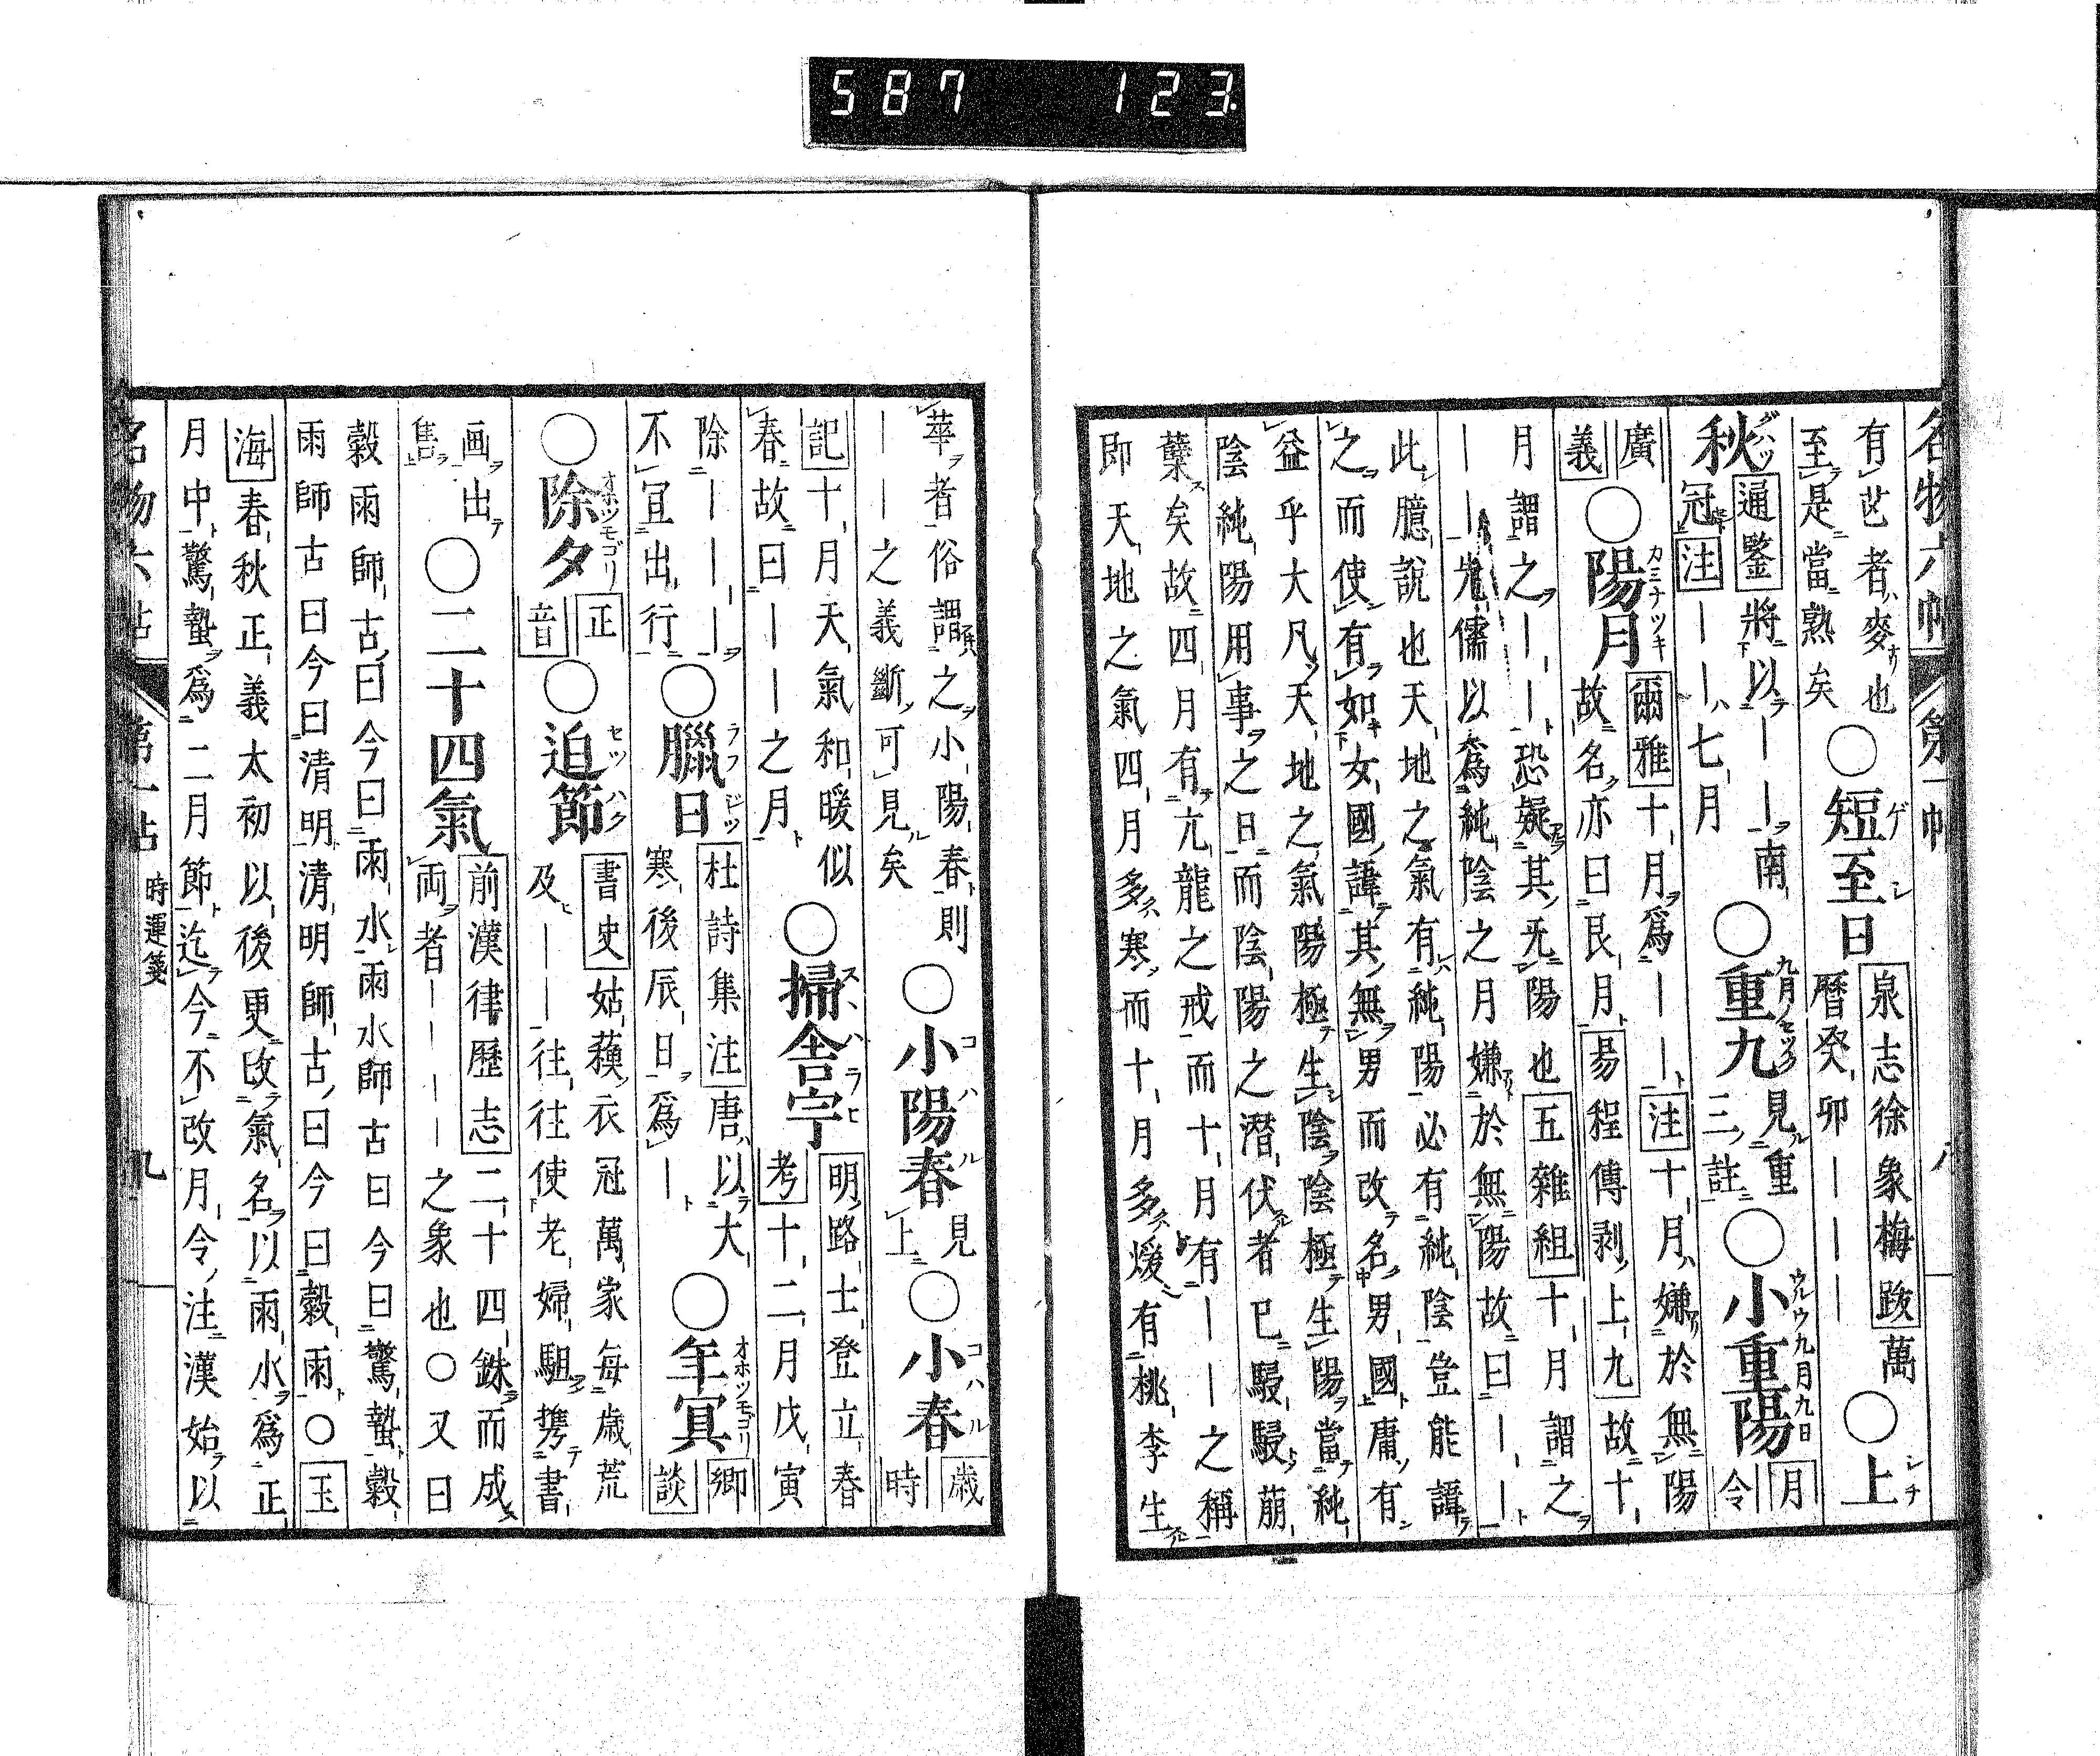 587 123.
名物六帖 第一帖 八
有芒者麥也
至是當熟矣
○短至日 ゲシ
泉志徐象梅跋萬
曆癸卯｜｜｜
○上秋 シチグハツ
通鑑將以｜｜南
冠注｜｜七月
○重九 九月ノセック
見重
三註
○小重陽 ウルウ九月九日
月令
廣義
○陽月 カミナツキ
爾雅十月爲｜｜注十月嫌於無陽
故名亦曰艮月易程傳剥上九故十
月謂之｜｜恐疑其无陽也五雜組十月謂之
｜｜先儒以爲純陰之月嫌於無陽故曰｜｜
此臆說也天地之氣有純陽必有純陰豈能諱
之而使有如女國諱其無男而改名男國庸有
益乎大凡天地之氣陽極生陰陰極生陽當純
陰純陽用事之日而陰陽之潛伏者已駸駸萠
蘖矣故四月有亢龍之戒而十月有｜｜之稱
即天地之氣四月多寒而十月多煖有桃李生
華者俗謂之小陽春則
｜｜之義斷可見矣
○小陽春 コハル
見上
○小春 コハル
歲時
記十月天氣和暖似
春故曰｜｜之月
○掃舍宇 スハラヒ
明路士登立春
考十二月戊寅
除｜｜｜
不宜出行
○臘日 ラフジツ
杜詩集注唐以大
寒後辰日爲｜
○年㝠 オホツモゴリ
鄉談
○除夕 オホツモゴリ
正音
○迫節 セツハク
書史姑蘓衣冠萬家每歲荒
及｜｜往往使老婦駔攜書
画出
售
○二十四氣
前漢律歷志二十四銖而成
両者｜｜｜之象也○又曰
穀雨師古曰今曰雨水雨水師古曰今曰驚蟄穀
雨師古曰今曰清明清明師古曰今曰穀雨○玉
海春秋正義太初以後更改氣名以雨水爲正
月中驚蟄爲二月節迄今不改月令注漢始以
名物六帖 第一帖 時運箋 九